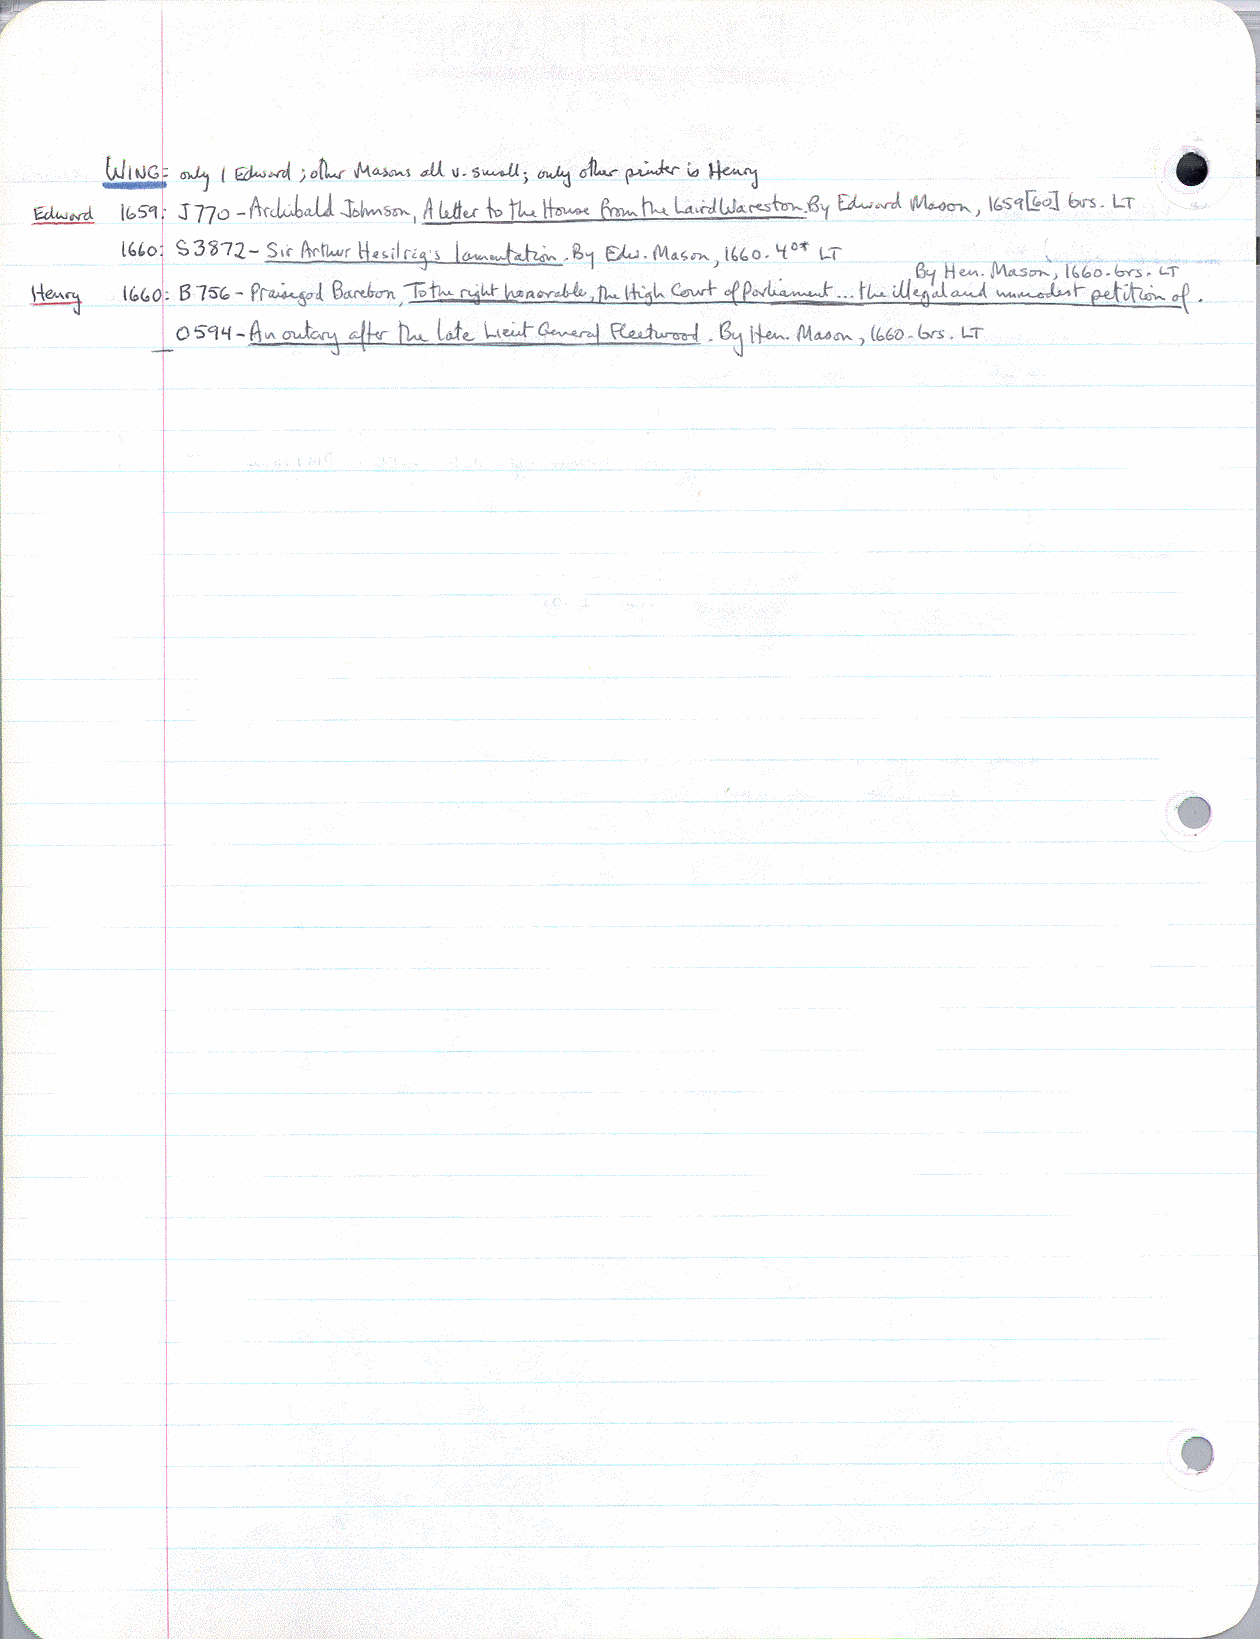 WING: only 1 Edward; other Masons all v. small; only other printer is Henry
Edward 1659: J770 - Archibald Johnson, A letter to the House from the Laird Wareston. By Edward Mason, 1659[60] brs. LT
1660: S3872 - Sir Arthur Hesilrig's lamentation. By Edw. Mason, 1660. 4o* LT
By Hen. Mason, 1660. brs. LT
Henry 1660: B756 - Praisegod Barebon, To the right honorable, the High Court of Parliament ... the illegal and immodest petition of.
O594 - An outcry after the late Lieut General Fleetwood. By Hen. Mason, 1660. brs. LT